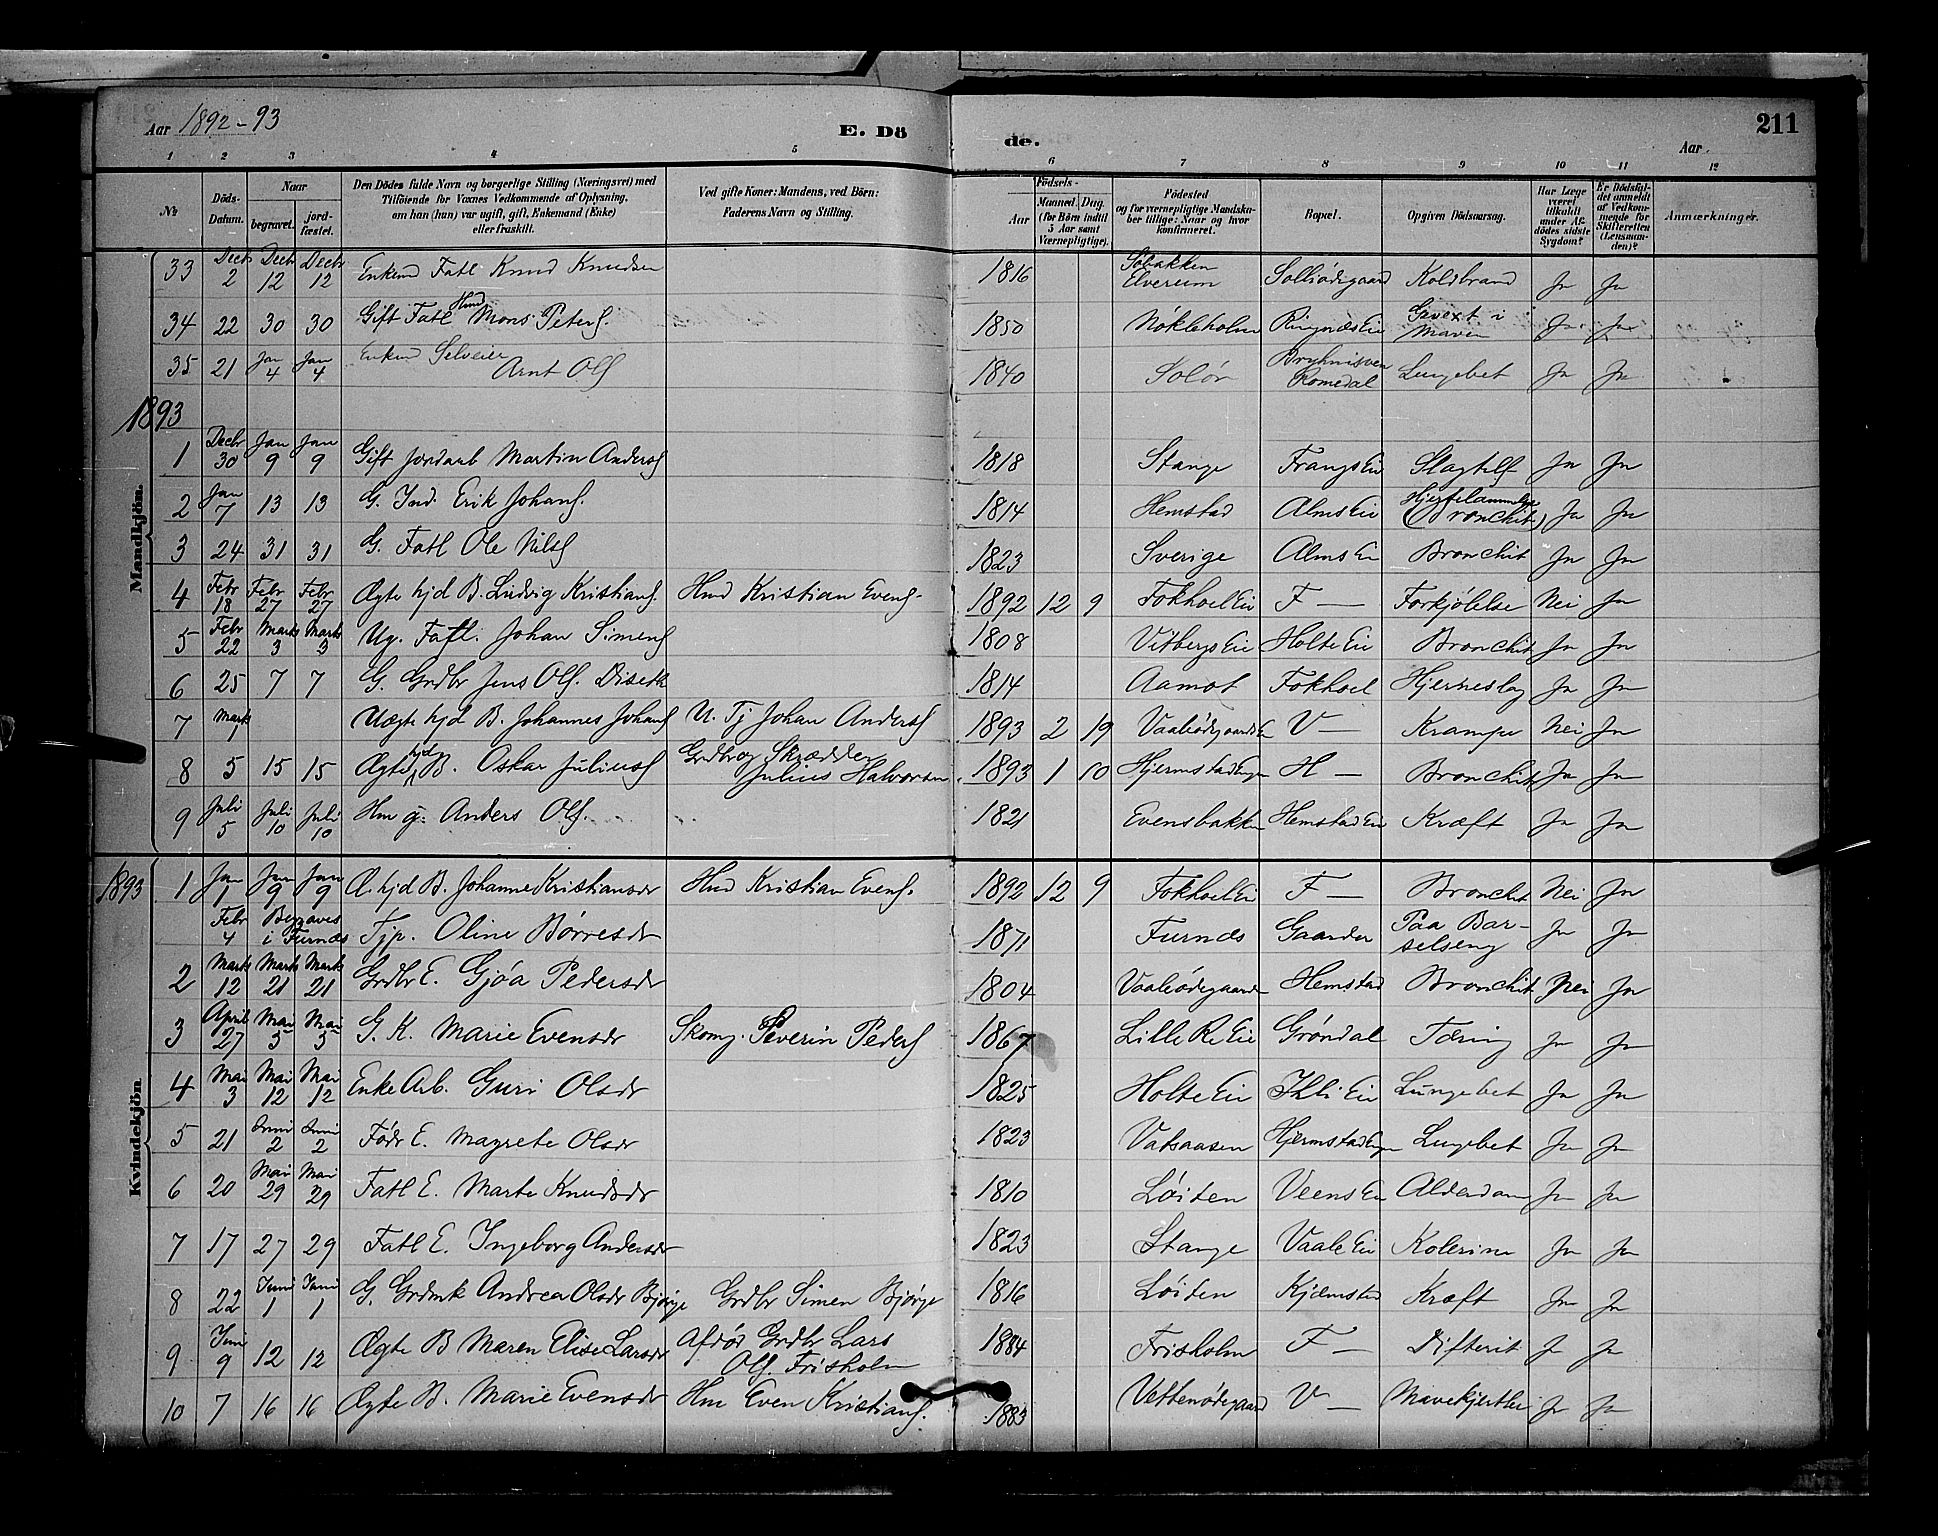 Aar 1892-93 E. Dö
de. 211
Aar.
1 2 3 4 5 6 7 8 9 10 11 12
No. Döds-Datum. Naar begravet. jord-fæstet. Den Dödes fulde Navn og borgerlige Stilling (Næringsvei) med Tilföiende for Voxnes Vedkommende af Oplysning, om han (hun) var ugift, gift, Enkemand (Enke) eller fraskilt. Ved gifte Koner: Mandens, ved Börn: Faderens Navn og Stilling. Födsels- Aar Maaned. Dag. (for Börn indtil 5 Aar samt Værnepligtige). Födested og for værnepligtige Mandskaber tillige: Naar og hvor konfirmeret. Bopæl. Opgiven Dödsaarsag. Har Læge været tilkaldt under Afdödes sidste Sygdom? Er Dödsfaldet anmeldt af Vedkommende for Skifteretten (Lensmanden)? Anmærkninger.
Mandkjön.
33 Decbr 2 Decbr 12 Decbr 12 Enkem Fatl Knud Knudsen 1816 Elverum Koldbrand Ja Ja
34 22 30 30 Gift Fatl Hmd Mons Peters. 1850 Nökleholm Ringnæs Ei i Maven Ja Ja
35 21 Jan 4 Jan 4 Enkem Selveier Arnt Ols 1840 Solör Romedal Lungebet Ja Ja
1893
1 Decbr 30 Jan 9 Jan 9 Gift Jordarb Martin Anders 1818 Stange Frangs Ei Slagtilf Ja Ja
2 Jan 7 13 13 G. Ind. Erik Johans. 1814 Hemstad Alms Ei (Bronchit) Ja Ja
3 24 31 31 G. Fatl Ole Nils 1823 Sverige Alms Ei Bronchit Ja Ja
4 Febr 18 Febr 27 Febr 27 Ægte hjd B. Ludvig Kristians. Hmd Kristian Evens. 1892 12 9 Fokhol Ei F — Forkjölelse Nei Ja
5 Febr 22 Marts 3 Marts 3 Ug. Fatl. Johan Simens 1808 Vitbergs Ei Holte Ei Bronchit Ja Ja
6 25 7 7 G. Grdbr Jens Ols. Diseth 1814 Aamot Fokhol Hjerneslag Ja Ja
7 Marts 1 Uægte hjd B. Johannes Johans U. Tj Johan Anders 1893 2 19 V — Krampe Nei Ja
8 5 15 15 Ægte hjd B. Oskar Julius Grdbr og Skrædder Julius Halvorsen 1893 1 10 H — Bronchit Ja Ja
9 Juli 5 Juli 10 Juli 10 Hm g. Anders Ols. 1821 Evensbakken Hemstad Ei Kræft Ja Ja
Kvindekjön.
1893 1 Jan 1 Jan 9 Jan 9 Æ. hjd B. Johanne Kristiansdr Hmd Kristian Evens. 1892 12 9 Fokhol Ei F — Bronchit Nei Ja
Febr 4 Begraves i Furnæs Tjp. Oline Börresdr 1871 Furnæs Gaarder Paa Barselseng Ja Ja
2 Marts 12 Marts 21 Marts 21 Grdbr E. Gjöa Pedersdr 1804 Vaaleödegaarden Hemstad Bronchit Nei Ja
3 April 27 Mai 5 Mai 5 G. K. Marie Evensdr Skomg. Severin Peders 1867 Lille Re Ei Gröndal Tæring Ja Ja
4 Mai 3 Mai 12 Mai 12 Enke Arb. Guri Olsdr 1825 Holte Ei Lungebet Ja Ja
5 21 Juni 2 Juni 2 Födr E. Magrete Olsdr 1823 Vatsaasen Lungebet Ja Ja
6 20 Mai 29 Mai 29 Fatl E. Marte Knudsdr 1810 Löiten Veens Ei Alderdom Ja Ja
7 17 27 29 Fatl E. Ingeborg Andersdr 1823 Stange Vaale Ei Kolerine Ja Ja
8 22 Juni 1 Juni 1 G. Grdmk Andrea Olsdr Björge Grdbr Simen Björge 1816 Löiten Kjemstad Kræft Ja Ja
9 Juni 9 12 12 Ægte B Maren Elise Larsdr Afdöd Grdbr Lars Ols. Frisholm 1884 Frisholm F — Difterit Ja Ja
10 7 16 16 Ægte B. Marie Evensdr Hm Even Kristians. 1883 V — Ja Ja